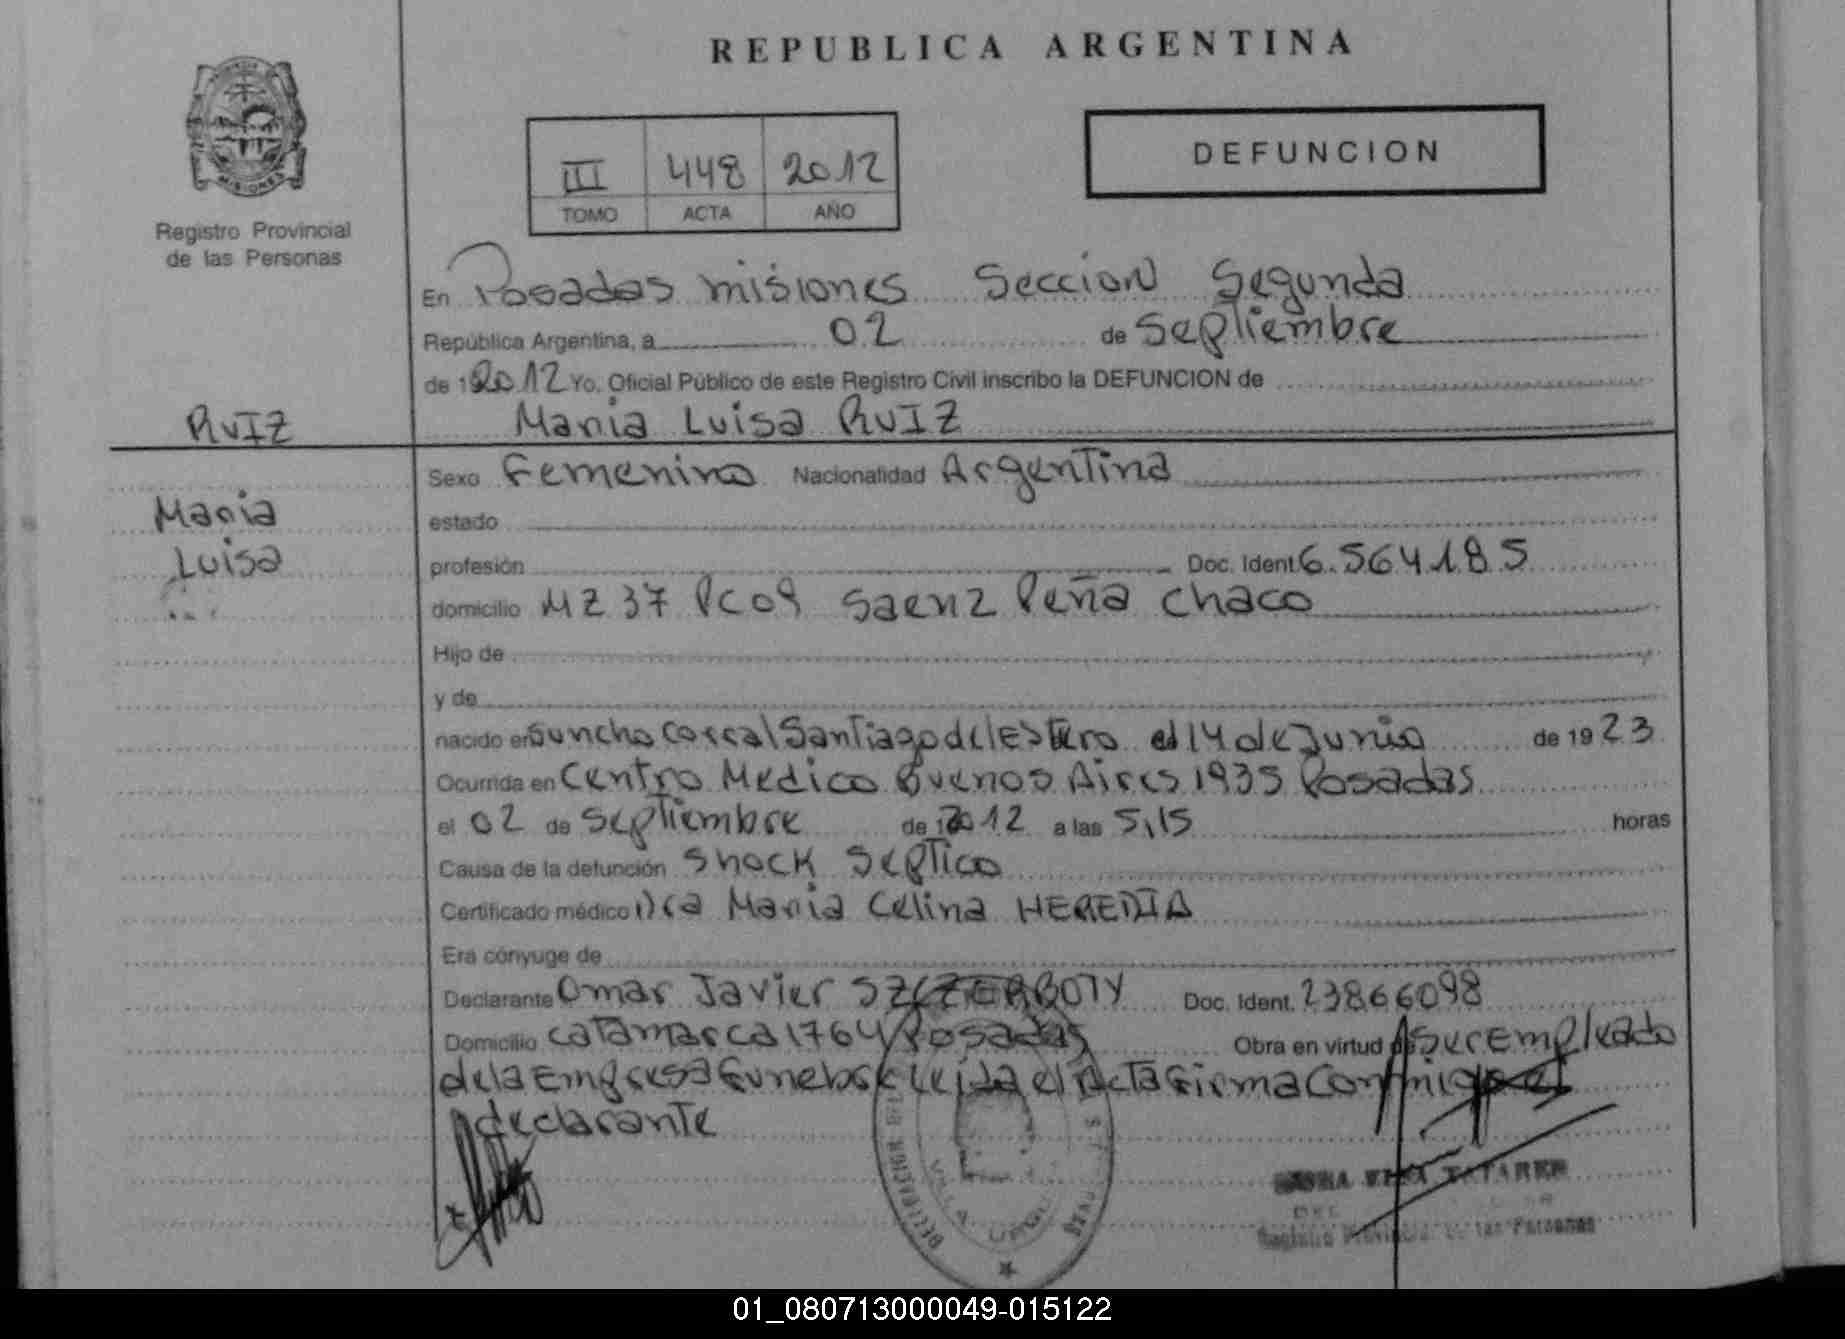 REPUBLICA ARGENTINA
III 448 2012
TOMO ACTA AÑO
DEFUNCION
MISIONES
Registro Provincial
de las Personas
En Posadas misiones Seccion Segunda
República Argentina, a 02 de Septiembre
de 12012 Yo, Oficial Público de este Registro Civil inscribo la DEFUNCION de
RUIZ
Maria Luisa RUIZ
Maria
Luisa
Sexo Femenino Nacionalidad Argentina
estado
profesión Doc. Ident. 6.564.185
domicilio MZ 37 Pc 09 Saenz Peña Chaco
Hijo de
y de
nacido en Suncho Corral Santiago del Estero el 14 de Junio de 1923
Ocurrida en Centro Medico Buenos Aires 1935 Posadas
el 02 de Septiembre de 2012 a las 5,15 horas
Causa de la defunción Shock Septico
Certificado médico Dra Maria Celina HEREDIA
Era cónyuge de
Declarante Omar Javier Doc. Ident. 23866098
Domicilio Catamarca 1764 Posadas Obra en virtud de Ser Empleado
de la Empresa Funebre Leida el Acta Firma Conmigo el
declarante
DELEGACION
VILLA
Registro Provincial de las Personas
01_080713000049-015122